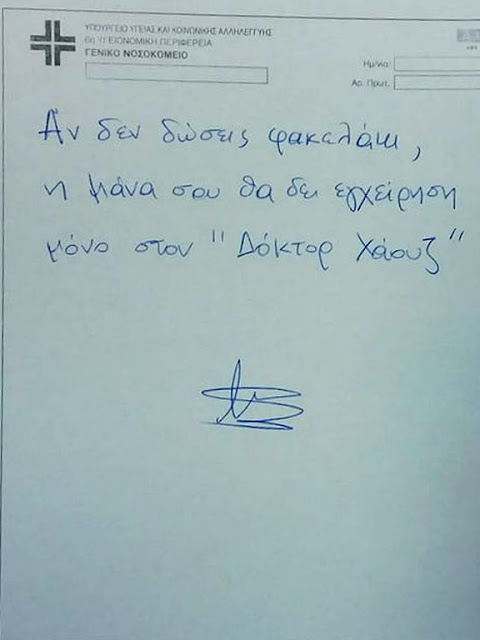 ΥΠΟΥΡΓΕΙΟ ΥΓΕΙΑΣ ΚΑΙ ΚΟΙΝΩΝΙΚΗΣ ΑΛΛΗΛΕΓΓΥΗΣ
6η ΥΓΕΙΟΝΟΜΙΚΗ ΠΕΡΙΦΕΡΕΙΑ
ΓΕΝΙΚΟ ΝΟΣΟΚΟΜΕΙΟ
Ημ/νία:
Αρ. Πρωτ.
Αν δεν δώσεις φακελάκι,
η μάνα σου θα δει εγχείρηση
μόνο στον "Δόκτορ Χάουζ"